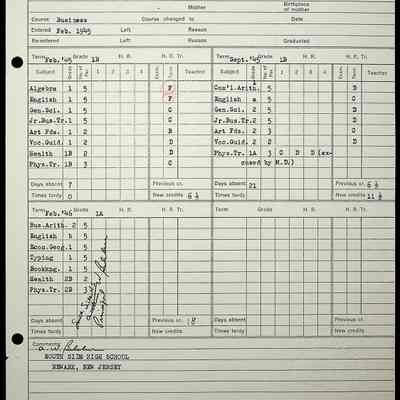 Mother
Birthplace of mother
Course Business Course changed to Date
Entered Feb. 1945 Left Reason
Re-entered Left Reason Graduated
Term Feb. '45 Grade 1B H. R. H. R. Tr.
Term Sept. '45 Grade 1B H. R. H. R. Tr.
Subject Grade No. of Pds. 1 2 3 4 Exam. Term Teacher
Subject Grade No. of Pds. 1 2 3 4 Exam. Term Teacher
Algebra 1 5 F
Com'l.Arith. 5 D
English 1 5 F
English a 5 D
Gen.Sci. 1 5 C
Gen.Sci. 2 5 C
Jr.Bus.Tr.1 5 C
Jr.Bus.Tr.2 5 D
Art Fds. 1 2 B
Art Fds. 2 3 C
Voc.Guid. 1 2 D
Voc.Guid. 2 2 D
Health 1B 2 D
Phys.Tr. 1A 3 C D D (ex-
Phys.Tr. 1B 3 C
cused by M.D.)
Days absent 7 Previous cr.
Days absent 21 Previous cr. 6 ½
Times tardy 0 New credits 6 ½
Times tardy 0 New credits 11 ½
Term Feb. '46 Grade 1A H. R. H. R. Tr.
Term Grade H. R. H. R. Tr.
Bus.Arith. 2 5
English b 5
Econ.Geog.1 5
Typing 1 5
Bookkng. 1 5
Health 2B 2
Phys.Tr. 2B 3
Principal
Days absent Previous cr. 18
Days absent Previous cr.
Times tardy New credits
Times tardy New credits
Comments:
SOUTH SIDE HIGH SCHOOL
NEWARK, NEW JERSEY